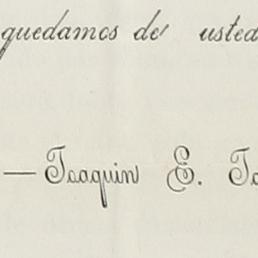 quedamos de usted
— Joaquin E.